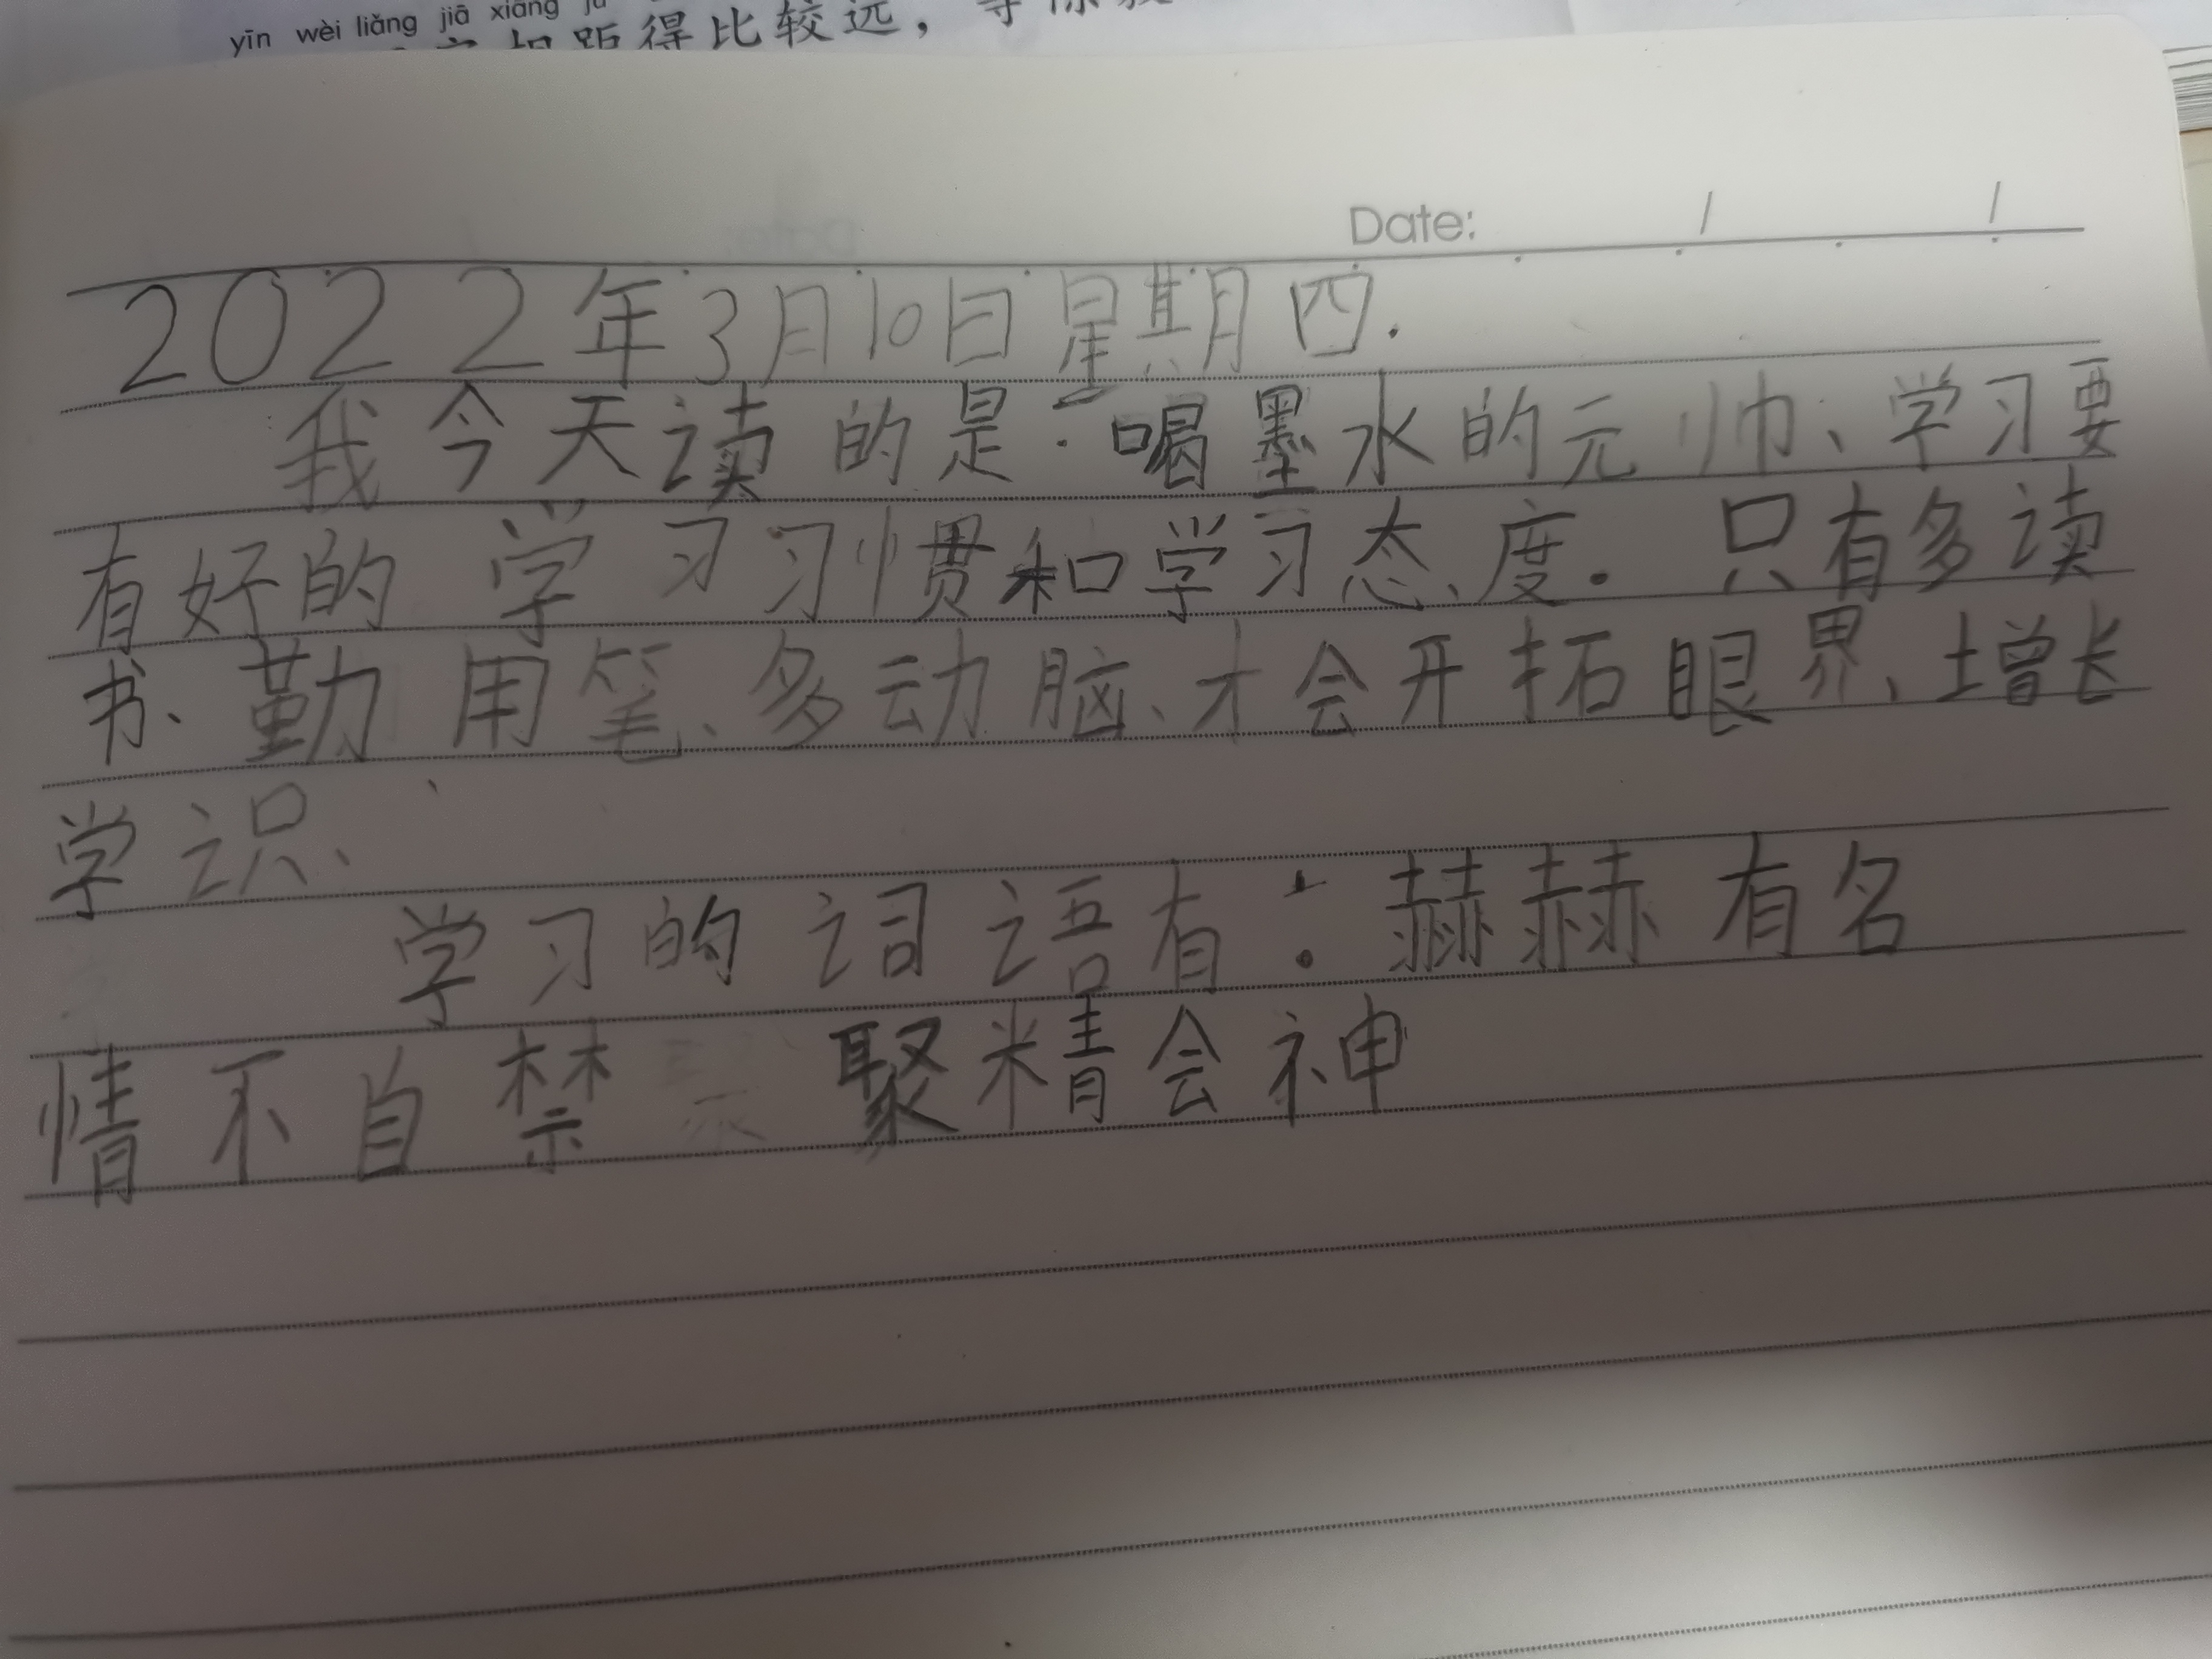 yīn wèi liǎng jiā xiāng jù
相距得比较远，等你
Date: / /
2022年3月10日星期四.
我今天读的是:喝墨水的元帅、学习要
有好的学习习惯和学习态度. 只有多读
书、勤用笔、多动脑、才会开拓眼界、增长
学识、
学习的词语有: 赫赫有名
情不自禁 聚精会神